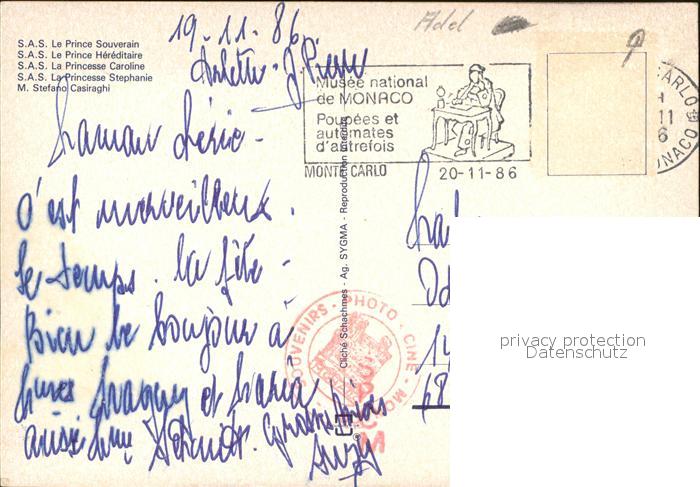 19-11-86
Adel
S.A.S. Le Prince Souverain
S.A.S. Le Prince Héréditaire
S.A.S. La Princesse Caroline
S.A.S. La Princesse Stephanie
M. Stefano Casiraghi
Arlette - J. Pierre
Musée national
de MONACO
Poupées et
automates
d'autrefois
MONTE CARLO 20-11-86
CARLO
11
6
MONACO
Maman
c'est merveilleux.
le temps. la fête -
Bien le bonjour à
et Maria
aussi Schmidt.
Suzy
Cliché Schachmes - Ag. SYGMA - Reproduction interdite
SOUVENIRS - PHOTO - CINE
14
68
privacy protection
Datenschutz